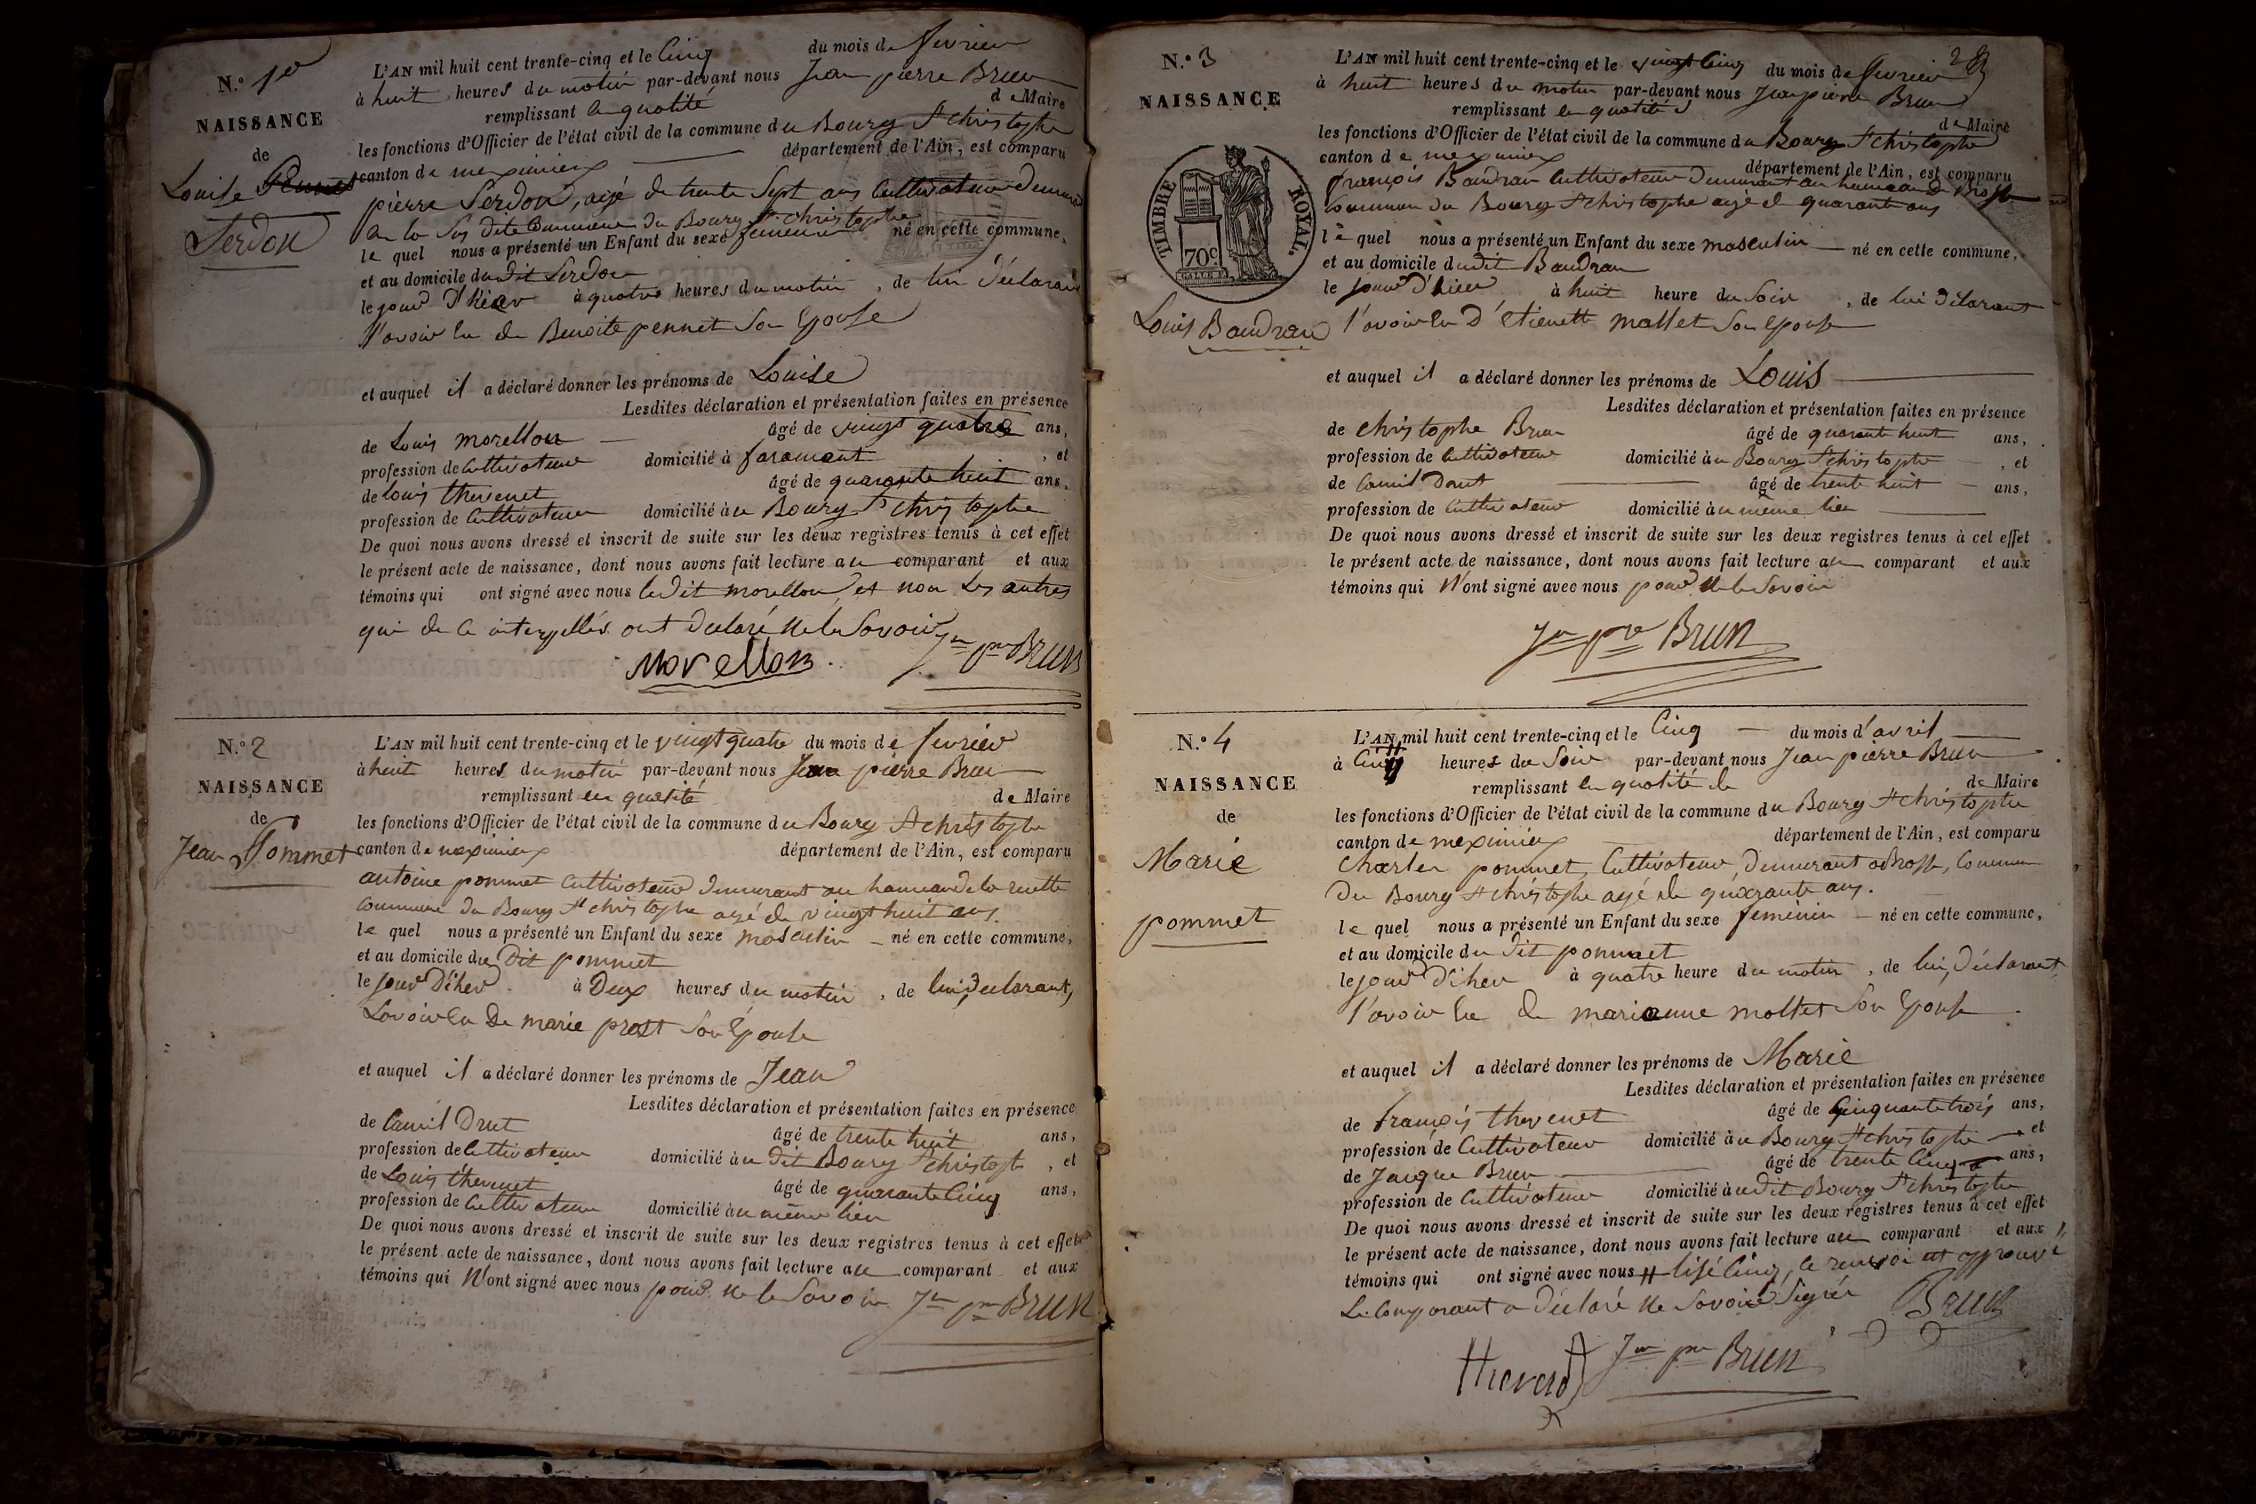 N.º 1er
NAISSANCE
de
Louise Pennet
Serdon
L'AN mil huit cent trente-cinq et le Cinq du mois de fevrier
à huit heures du matin par-devant nous Jean pierre Brun
remplissant en qualité de Maire
les fonctions d'Officier de l'état civil de la commune du Bourg St christophe
canton de meximieux département de l'Ain, est comparu
pierre Serdon, agé de trente Sept ans Cultivateur demeurant
en la Sus dite Commune du Bourg St christophe
le quel nous a présenté un Enfant du sexe feminin né en cette commune,
et au domicile du dit Serdon
le jour d'hier à quatre heures du matin, de lui déclarant
l'avoir Eu de Benoite pennet Son Epouse
et auquel il a déclaré donner les prénoms de Louise
Lesdites déclaration et présentation faites en présence
de Louis morellon âgé de vingt quatre ans,
profession de Cultivateur domicilié à faramant, et
de louis thevenet âgé de quarante huit ans,
profession de Cultivateur domicilié au Bourg St christophe
De quoi nous avons dressé et inscrit de suite sur les deux registres tenus à cet effet
le présent acte de naissance, dont nous avons fait lecture au comparant et aux
témoins qui ont signé avec nous le dit morellon et non les autres
qui de ce interpellés ont declaré ne le Savoir
Morellon Jn pre BRUN
N.º 2
NAISSANCE
de
Jean Pommet
L'AN mil huit cent trente-cinq et le vingt quatre du mois de fevrier
à huit heures du matin par-devant nous Jean pierre Brun
remplissant en qualité de Maire
les fonctions d'Officier de l'état civil de la commune du Bourg St christophe
canton de meximieux département de l'Ain, est comparu
antoine pommet Cultivateur demeurant au hameau de la ruette
Commune du Bourg St christophe agé de vingt huit ans.
le quel nous a présenté un Enfant du sexe masculin né en cette commune,
et au domicile du Dit pommet
le jour D'hier à Deux heures du matin, de lui, declarant,
Lavoir Eu De marie prost Son Epouse
et auquel il a déclaré donner les prénoms de Jean
Lesdites déclaration et présentation faites en présence
de Camil Drut âgé de trente huit ans,
profession de Cultivateur domicilié au dit Bourg St christophe, et
de Louis thevenet âgé de quarante Cinq ans,
profession de Cultivateur domicilié au même lieu
De quoi nous avons dressé et inscrit de suite sur les deux registres tenus à cet effet
le présent acte de naissance, dont nous avons fait lecture au comparant et aux
témoins qui N'ont signé avec nous pour ne le Savoir Jn pre BRUN
N.º 3
NAISSANCE
TIMBRE ROYAL.
70c
Louis Baudran
L'AN mil huit cent trente-cinq et le vingt Cinq du mois de fevrier
à huit heures du matin par-devant nous Jean pierre Brun
remplissant en qualité de Maire
les fonctions d'Officier de l'état civil de la commune du Bourg St christophe
canton de meximieux département de l'Ain, est comparu
françois Baudran Cultivateur Demeurant au hameau de Brosse
Commune du Bourg St christophe agé de quarante ans
le quel nous a présenté un Enfant du sexe masculin né en cette commune,
et au domicile du dit Baudran
le jour d'hier à huit heure du Soir, de lui declarant
l'avoir Eu d'Etienette mallet Son Epouse
et auquel il a déclaré donner les prénoms de Louis
Lesdites déclaration et présentation faites en présence
de christophe Brun âgé de quarante huit ans,
profession de Cultivateur domicilié au Bourg St christophe, et
de Camil Drut âgé de trente huit ans,
profession de Cultivateur domicilié au même lieu
De quoi nous avons dressé et inscrit de suite sur les deux registres tenus à cet effet
le présent acte de naissance, dont nous avons fait lecture au comparant et aux
témoins qui N'ont signé avec nous pour Ne le Savoir
Jn pre BRUN
N.º 4
NAISSANCE
de
Marie
pommet
L'AN mil huit cent trente-cinq et le Cinq du mois d'avril
à Cinq heures du Soir par-devant nous Jean pierre Brun
remplissant en qualité de de Maire
les fonctions d'Officier de l'état civil de la commune du Bourg St christophe
canton de meximieux département de l'Ain, est comparu
Charles pommet, Cultivateur, demeurant a Brosse, Commune
Du Bourg St christophe agé de quarante ans.
le quel nous a présenté un Enfant du sexe feminin né en cette commune,
et au domicile du dit pommet
le jour d'hier à quatre heure du matin, de lui, déclarant
l'avoir Eu de marianne mollet Son Epouse
et auquel il a déclaré donner les prénoms de Marie
Lesdites déclaration et présentation faites en présence
de françois thevenet âgé de Cinquante trois ans,
profession de Cultivateur domicilié au Bourg St christophe et
de Jacque Brun âgé de trente Cinq ans,
profession de Cultivateur domicilié au dit Bourg St christophe
De quoi nous avons dressé et inscrit de suite sur les deux registres tenus à cet effet
le présent acte de naissance, dont nous avons fait lecture au comparant et aux
témoins qui ont signé avec nous # lisé Cinq, le renvoi est approuvé
Le Comparant a déclaré Ne Savoir Signer BRUN
Jn pre BRUN